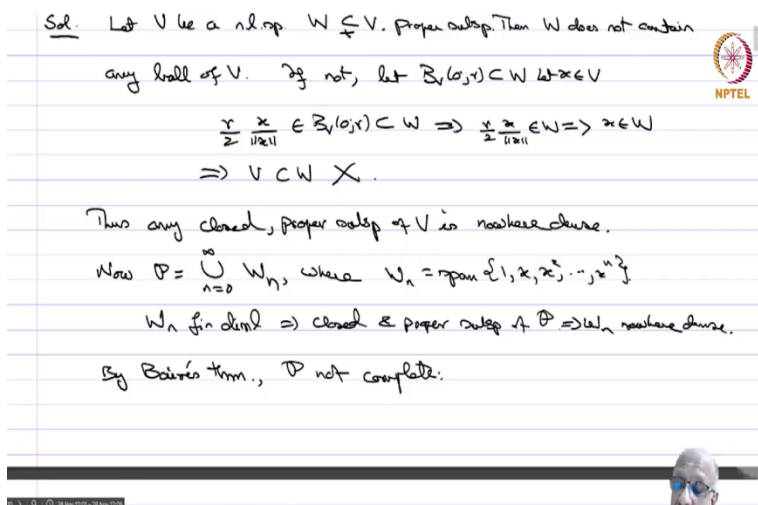 Sol. Let V be a n.l.sp. W ⊊ V. proper subsp. Then W does not contain
NPTEL
any ball of V. If not, let B_V(0;r) ⊂ W Let x ∈ V
r/2 x/||x|| ∈ B_V(0;r) ⊂ W ⇒ r/2 x/||x|| ∈ W ⇒ x ∈ W
⇒ V ⊂ W X.
Thus any closed, proper subsp of V is nowhere dense.
Now P = ∪_{n=0}^{∞} W_n, where W_n = span {1, x, x², ..., xⁿ}
W_n fin diml ⇒ closed & proper subsp of P ⇒ W_n nowhere dense.
By Baire's thm., P not complete.